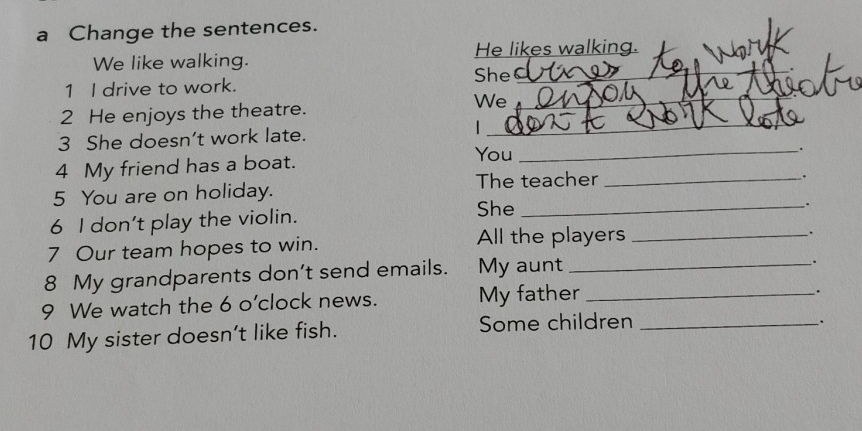 a Change the sentences.
We like walking. He likes walking.
1 I drive to work. She drives to work
2 He enjoys the theatre. We enjoy the theatre
3 She doesn't work late. I don't work late
4 My friend has a boat. You ____.
5 You are on holiday. The teacher ____.
6 I don't play the violin. She ____.
7 Our team hopes to win. All the players ____.
8 My grandparents don't send emails. My aunt ____.
9 We watch the 6 o'clock news. My father ____.
10 My sister doesn't like fish. Some children ____.